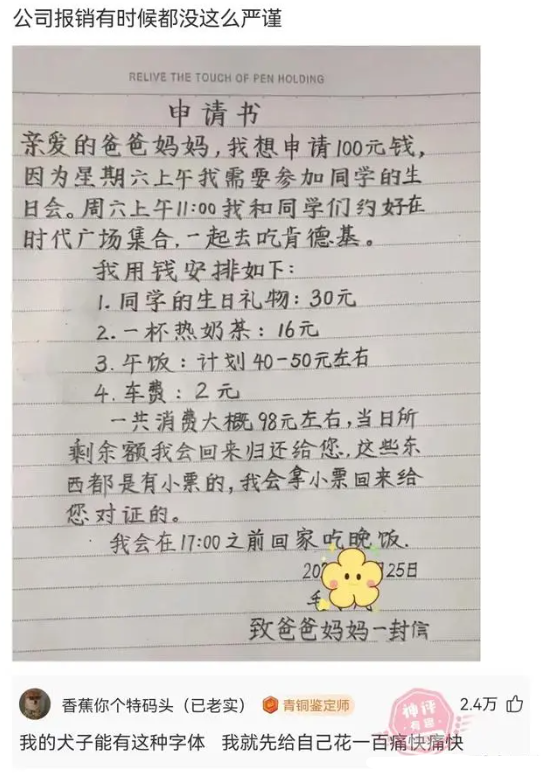 公司报销有时候都没这么严谨
RELIVE THE TOUCH OF PEN HOLDING
申请书
亲爱的爸爸妈妈,我想申请100元钱,
因为星期六上午我需要参加同学的生
日会。周六上午11:00我和同学们约好在
时代广场集合,一起去吃肯德基。
我用钱安排如下:
1.同学的生日礼物:30元
2.一杯热奶茶:16元
3.午饭:计划40-50元左右
4.车费:2元
一共消费大概98元左右,当日所
剩余额我会回来归还给您,这些东
西都是有小票的,我会拿小票回来给
您对证的。
我会在17:00之前回家吃晚饭.
25日
致爸爸妈妈一封信
香蕉你个特码头(已老实)
青铜鉴定师
神评
有趣
2.4万
我的犬子能有这种字体 我就先给自己花一百痛快痛快